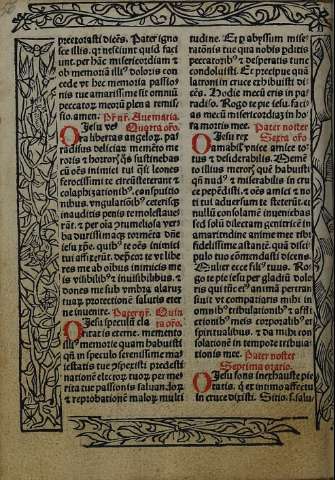 precorasti dicēs. Pater igno
sce illis. qr nesciunt quid faci
unt. per hāc misericordiam &
ob memoriā illiꝰ doloris con
cede vt hec memoria passio
nis tue amarissime sit omniū
peccatoꝝ meorū plena remis
sio. amen. Pr̄ nr̄. Aue maria.
O Jesu ve Quarta oro.
ra libertas angeloꝝ. pa
radisus deliciaꝝ memēto me
roris & horroris qs sustinebas
cū oēs inimici tui qsi leones
ferocissimi te circūsteterant &
colaphizationibꝰ. cōspuitio
nibus. vngulationibꝰ ceterisqꝫ
inauditis penis te molestaue
rāt. & per oīa ꝓtumelosa ver
ba durissimaqꝫ tormēta dn̄e
iesu xp̄e. quibꝰ te oēs inimici
tui afflixerūt. depcor te vt libe
res me ab oībus inimicis me
is visibilibꝰ & inuisibilibus. &
dones me sub vmbra alarum
tuaꝝ protectionē salutis eter
ne inuenire. Pater nr̄. Quin
O Jesu speculū cla ta oro.
ritatis eterne. memento
illiꝰ memorie quam habuisti
qn̄ in speculo serenissime ma
iestatis tue ꝓspexisti predesti
nationē electoꝝ tuoꝝ per me
rita tue passionis saluandoꝝ
& reprobationē maloꝝ multi
tudine. Et ꝑ abyssum mise
ratōnis tue qua nobis ꝑditis
peccatoribꝰ & desperatis tunc
condoluisti. Et precipue quā
latroni in cruce exhibuisti di
cēs. Hodie mecū eris in pa
radiso. Rogo te pie iesu. faci
as mecū misericordiā in ho
ra mortis mee. Pater noster
O Jesu rex Sexta oro
amabilꝰ amice & to
tus & desiderabilis. Memē
to illius meroris quē habuisti
qn̄ nudꝰ & miserabilis in cru
ce pependisti. & oēs amici & no
ti tui aduersum te steterūt. et
nullū consolantē inueniebas
sed solū dilectam genitricē in
amaritudine anime tue tibi
fidelissime astantē. quā disci
pulo tuo cōmendasti dicens.
Mulier ecce filiꝰ tuus. Rogo
te pie iesu per gladiū dolo
ris qui tūc eiꝰ animā pertran
siuit vt compatiaris mihi in
omnibꝰ tribulationibꝰ & affli
ctionibꝰ meis corporalibꝰ et
spiritualibus. & da mihi con
solationē in tempore tribula
tionis mee. Pater noster
Septima oratio.
O Jesu fons inexhauste pie
tatis. qui ex intimo affectu
in cruce dixisti. Sitio. s. salu